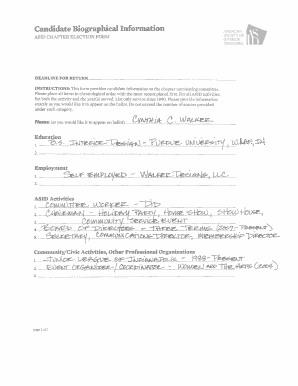 Candidate Biographical Information
ASID CHAPTER ELECTION FORM
AMERICAN SOCIETY OF INTERIOR DESIGNERS
DEADLINE FOR RETURN
INSTRUCTIONS: This form provides candidate information to the chapter nominating committee.
Please place all items in chronological order with the most recent placed first. For all ASID activities
list both the activity and the year(s) served. List only service since 1990. Please provide the information
exactly as you would like it to appear on the ballot. Do not exceed the number of entries provided
under each category.
Name: (as you would like it to appear on ballot) CYNTHIA C. WALKER
Education
1. B.S. INTERIOR DESIGN - PURDUE UNIVERSITY, W. LAF, IN
2.
Employment
1. SELF EMPLOYED - WALKER DESIGNS, LLC
2.
ASID Activities
1. COMMITTEE WORKER -
2. CHAIRMAN - HOLIDAY PARTY, HOME SHOW, SHOW HOUSE,
3. COMMUNITY SERVICE EVENT
4. BOARD OF DIRECTORS - THREE TERMS (2007 - PRESENT)
5. SECRETARY, COMMUNICATIONS DIRECTOR, MEMBERSHIP DIRECTOR
Community/Civic Activities, Other Professional Organizations
1. JUNIOR LEAGUE OF INDIANAPOLIS - 1988 - PRESENT
2. EVENT ORGANIZER/COORDINATOR - WOMEN AND THE ARTS (2005)
3.
page 1 of 2